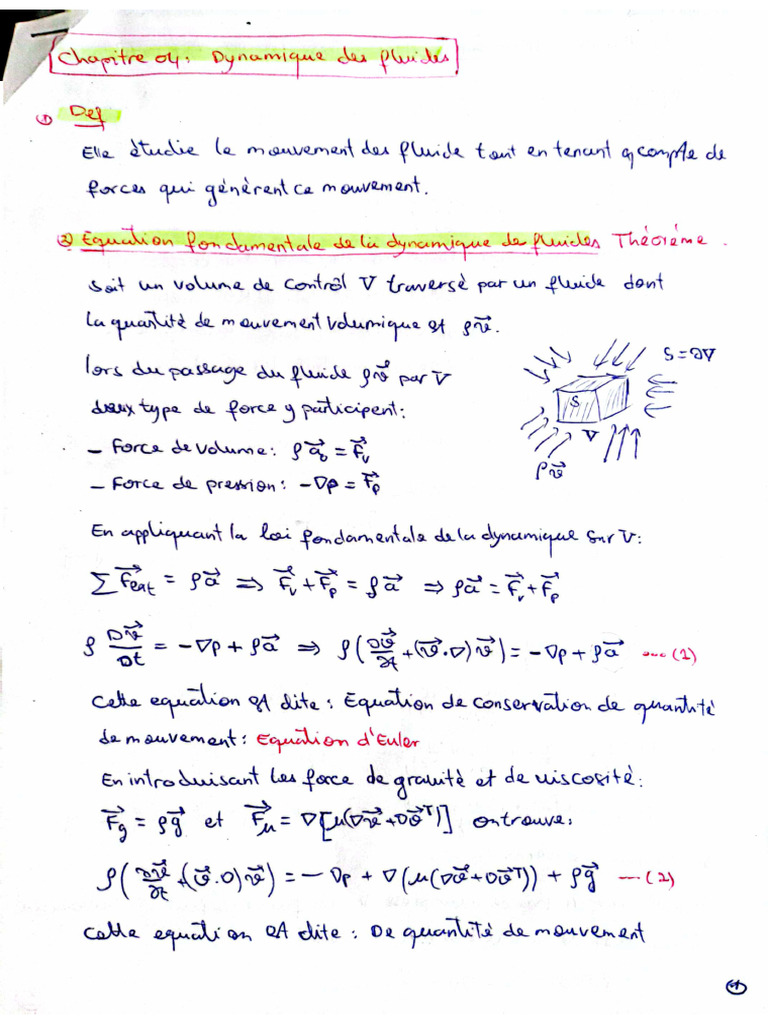 Chapitre 04: Dynamique des fluides
① Def
Elle étudie le mouvement des fluide tout en tenant compte de
forces qui génèrent ce mouvement.
② Equation fondamentale de la dynamique de fluides Théorème.
Soit un volume de contrôl V traversé par un fluide dont
la quantité de mouvement volumique est ρv⃗.
lors du passage du fluide ρv⃗ par V
deux type de force y participent:
S = ∂V
S
V
ρv⃗
- Force de volume: ρa⃗₀ = F⃗v
- Force de pression: -∇p = F⃗p
En appliquant la loi fondamentale de la dynamique sur V:
∑F⃗ext = ρa⃗ ⟹ F⃗v + F⃗p = ρa⃗ ⟹ ρa⃗ = F⃗v + F⃗p
ρ Dv⃗/Dt = -∇p + ρa⃗ ⟹ ρ(∂v⃗/∂t + (v⃗.∇)v⃗) = -∇p + ρa⃗ ---(1)
Cette equation est dite: Equation de conservation de quantité
de mouvement: Equation d'Euler
En introduisant les force de gravité et de viscosité:
F⃗g = ρg⃗ et F⃗μ = ∇[μ(∇v⃗ + ∇v⃗ᵀ)] on trouve:
ρ(∂v⃗/∂t + (v⃗.∇)v⃗) = -∇p + ∇(μ(∇v⃗ + ∇v⃗ᵀ)) + ρg⃗ ---(2)
Cette equation est dite: De quantité de mouvement
①